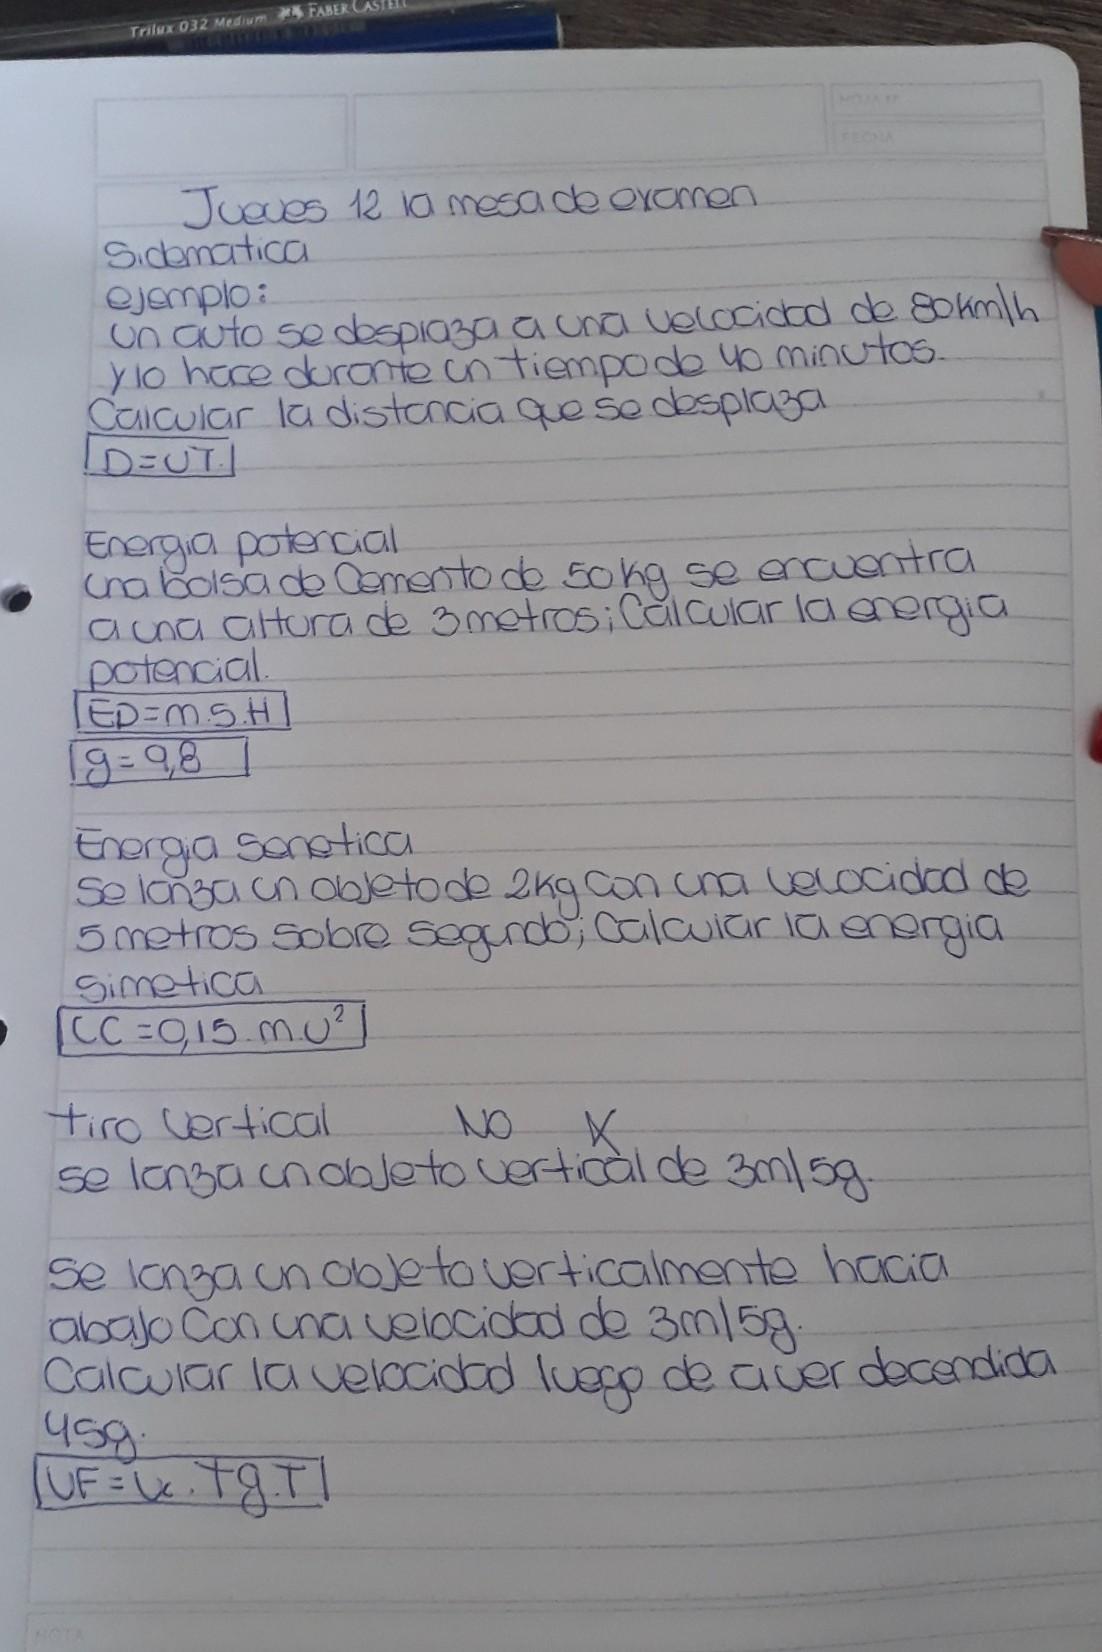 Trilux 032 Medium FABER CASTELL
HOJA Nº
FECHA
Jueves 12 la mesa de examen
Sidematica
ejemplo:
un auto se desplaza a una velocidad de 80km/h
y lo hace durante un tiempo de 40 minutos.
Calcular la distancia que se desplaza
D=VT.
Energia potencial
una bolsa de Cemento de 50kg se encuentra
a una altura de 3 metros; Calcular la energia
potencial.
EP=m.g.H
g=9,8
Energia senetica
Se lanza un objeto de 2kg con una velocidad de
5 metros sobre segundo; Calcular la energia
simetica
CC=0,15.m.v²
tiro vertical NO X
se lanza un objeto vertical de 3m/sg.
Se lanza un objeto verticalmente hacia
abajo con una velocidad de 3m/sg.
Calcular la velocidad luego de a ver decendida
4sg.
VF= . +g.T
NOTA